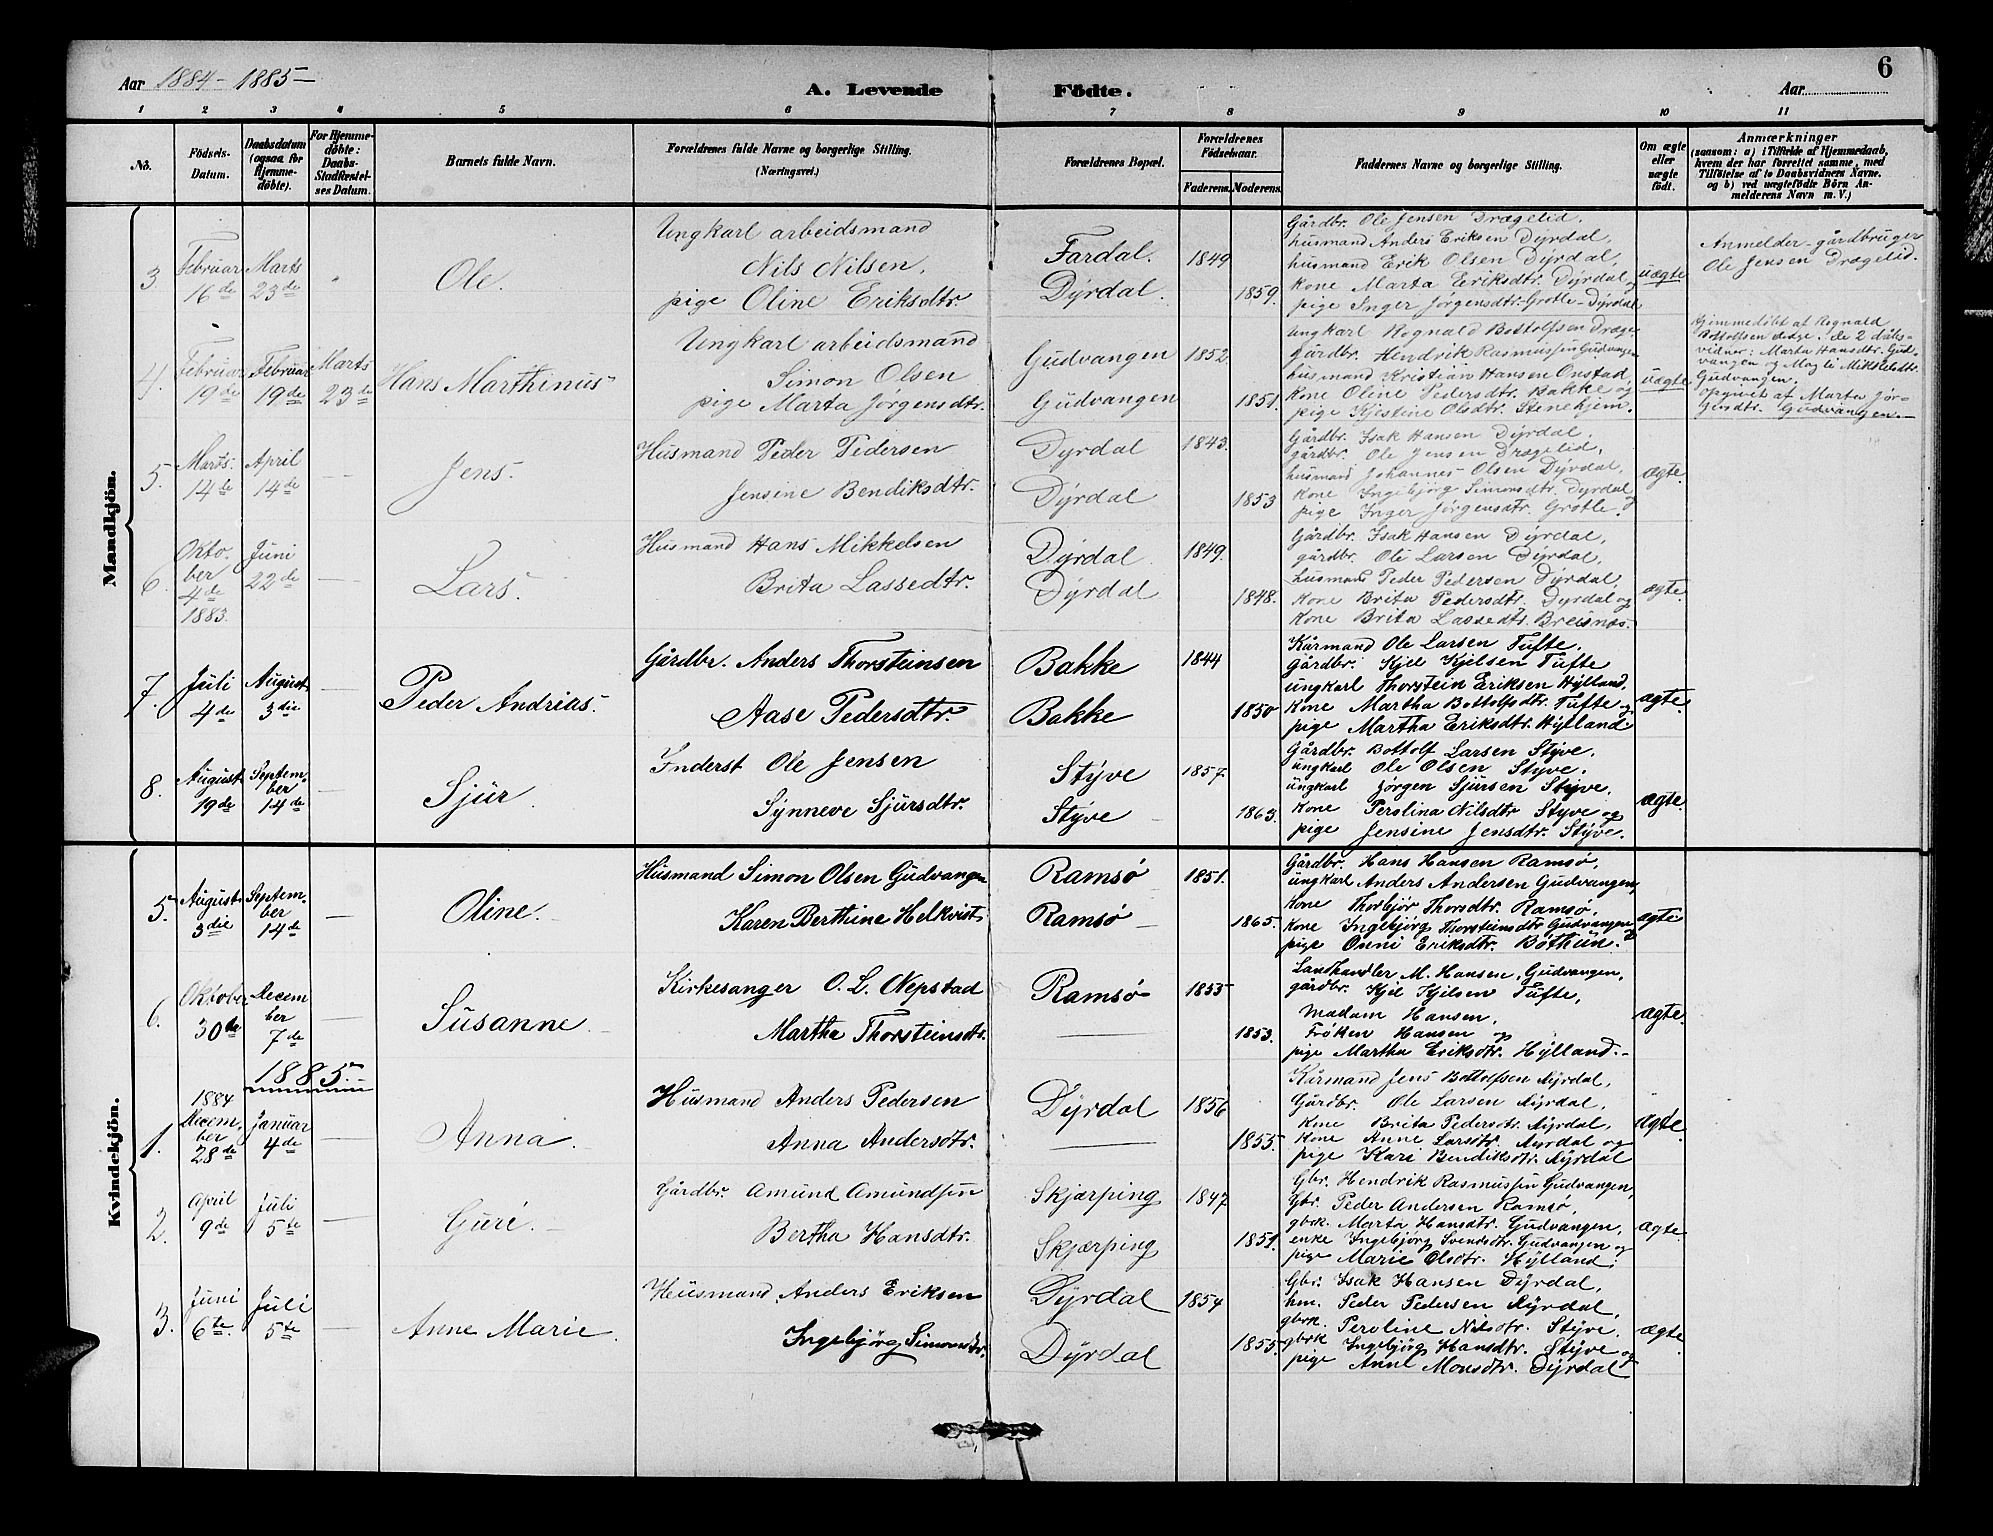 Aar 1884 - 1885 -
A. Levende Födte.
Aar
6
1 2 3 4 5 6 7 8 9 10 11
No.
Födsels-Datum.
Daabsdatum (ogsaa for Hjemmedöbte).
For Hjemmedöbte: Daabs-Stadfæstelses Datum.
Barnets fulde Navn.
Forældrenes fulde Navne og borgerlige Stilling. (Næringsvei.)
Forældrenes Bopæl.
Forældrenes Födselsaar.
Faderens. Moderens.
Faddernes Navne og borgerlige Stilling.
Om ægte eller uægte födt.
Anmærkninger
(saasom: a) i Tilfælde af Hjemmedaab, hvem der har forrettet samme, med Tilföielse af to Daabsvidners Navne. og b) ved uægtefödte Börn Anmelderens Navn m.V.)
Mandkjön.
3 Februar 16de Marts 23de " Ole.
Ungkarl arbeidsmand
Nils Nilsen,
pige Oline Eriksdtr.
Fardal. 1849
Dÿrdal. 1859.
Gårdbr. Ole Jensen Drægelid,
husmand Anders Eriksen Dÿrdal,
husmand Erik Olsen Dÿrdal,
kone Marta Eriksdtr. Dÿrdal og
pige Inger Jörgensdtr. Grotle - Dÿrdal
uægte
Anmelder - gårdbruger
Ole Jensen Drægelid.
4. Februar 19de Februar 19de Marts 23de Hans Marthinus
Ungkarl arbeidsmand
Simon Olsen
pige Marta Jörgensdtr.
Gudvangen 1852
Gudvangen 1851.
ungkarl Rognald Bottolfsen Dræge.
gårdbr. Hendrik Rasmussen Gudvangen
husmand Kristian Hansen Onstad,
kone Oline Pedersdtr. Bakke og
pige Kjestine Olsdtr. Stenehjem.
uægte
Hjemmedöbt af Rognald
Bottolfsen Dræge. De 2 dåbs-
vidner: Marta Hansdtr. Gud-
vangen og Magli Mikkelsdtr.
Gudvangen.
Opgivet af Marta Jör-
gensdtr. Gudvangen. -
5. Marts. 14de April 14de - Jens.
Husmand Peder Pedersen
Jensine Bendiksdtr.
Dyrdal 1843.
Dÿrdal 1853
Gårdbr. Isak Hansen Dÿrdal,
gårdbr. Ole Jensen Drægelid,
husmand Johannes Olsen Dÿrdal,
kone Ingebjörg Simonsdtr. Dyrdal og
pige Inger Jörgensdtr. Grotle.
ægte.
6. Oktober 4de 1883. Juni 22de - Lars.
Husmand Hans Mikkelsen
Brita Lassedtr.
Dÿrdal 1849.
Dÿrdal 1848.
Gårdbr. Isak Hansen Dÿrdal,
gårdbr. Ole Larsen Dÿrdal,
husmand Peder Pedersen Dÿrdal,
kone Brita Pedersdtr. Dyrdal og
kone Brita Lassedtr. Breisnæs.
ægte.
7. Juli 4de August 3die - Peder Andrias.
Gårdbr. Anders Thorsteinsen
Aase Pedersdtr.
Bakke 1844
Bakke 1850
Kårmand Ole Larsen Tufte.
Gårdbr. Kjel Kjelsen Tufte
ungkarl Thorstein Eriksen Hÿlland,
kone Martha Bottolfsdtr. Tufte og
pige Martha Eriksdtr. Hÿlland.
ægte.
8. August 19de September 14de - Sjür.
Inderst Ole Jensen
Sÿnneve Sjürsdtr.
Stÿve 1857.
Stÿve 1863.
Gårdbr. Bottolf Larsen Stÿve.
ungkarl Ole Olsen Stÿve.
ungkarl Jörgen Sjursen Stÿve.
kone Perolina Nilsdtr Styve og
pige Jensine Jensdtr. Stÿve.
ægte.
Kvindekjön.
5. August 3die September 14de - Oline.
Husmand Simon Olsen Gudvangen
Karen Berthine Helkvist
Ramsö 1851.
Ramsö 1865.
Gårdbr. Hans Hansen Ramsö,
ungkarl Anders Andersen Gudvangen,
kone Thorbjör Thorsdtr. Ramsö,
kone Ingebjörg Thorsteinsdtr Gudvangen og
pige Onni Eriksdtr. Bothün.
ægte
6. Oktober 30te December 7de - Susanne
Kirkesanger O. L. Nepstad
Martha Thorsteinsdtr.
Ramsö 1855
- 1853.
Landhandler M. Hansen, Gudvangen,
gårdbr. Kjel Kjelsen Tufte,
Madam Hansen,
Fröken Hansen og
pige Martha Eriksdtr. Hÿlland. -
ægte.
1885
1. 1884 December 28de Januar 4de - Anna.
Husmand Anders Pedersen
Anna Andersdtr.
Dÿrdal 1856
- 1855.
Kårmand Jens Bottolfsen Dÿrdal,
Gårdbr. Ole Larsen Dÿrdal,
Kone Brita Pedersdtr. Dÿrdal,
kone Anne Larsdtr. Dÿrdal og
pige Kari Bendiksdtr. Dÿrdal
ægte.
2. April 9de Juli 5te - Guri.
Gårdbr. Amund Amundsen
Bertha Hansdtr.
Skjærping 1847
Skjærping 1851.
Gbr. Hendrik Rasmussen Gudvangen,
Gbr. Peder Andersen Ramsö,
gbrk. Marta Hansdtr. Gudvangen,
enke Ingebjörg Svendsdtr. Gudvangen og
pige Marie Olsdtr. Hÿlland.
ægte.
3. Juni 6te. Juli 5te - Anne Marie.
Husmand Anders Eriksen
Ingebjörg Simonsdtr.
Dÿrdal 1854
Dÿrdal 1855.
Gbr. Isak Hansen Dÿrdal,
hm. Peder Pedersen Dÿrdal,
gbrk. Peroline Nilsdtr. Stÿve,
gbrk Ingebjörg Hansdtr. Stÿve og
pige Anne Monsdtr. Dÿrdal
ægte.